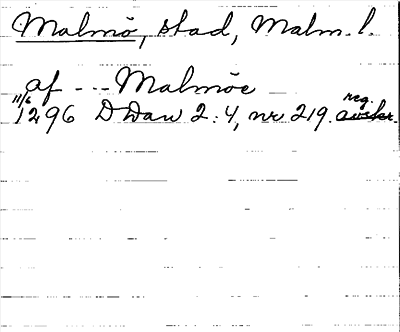 Malmö, stad, Malm. l.
af --- Malmöe
11/6 reg.
1296 DDan 2:4, nr 219. avskr.